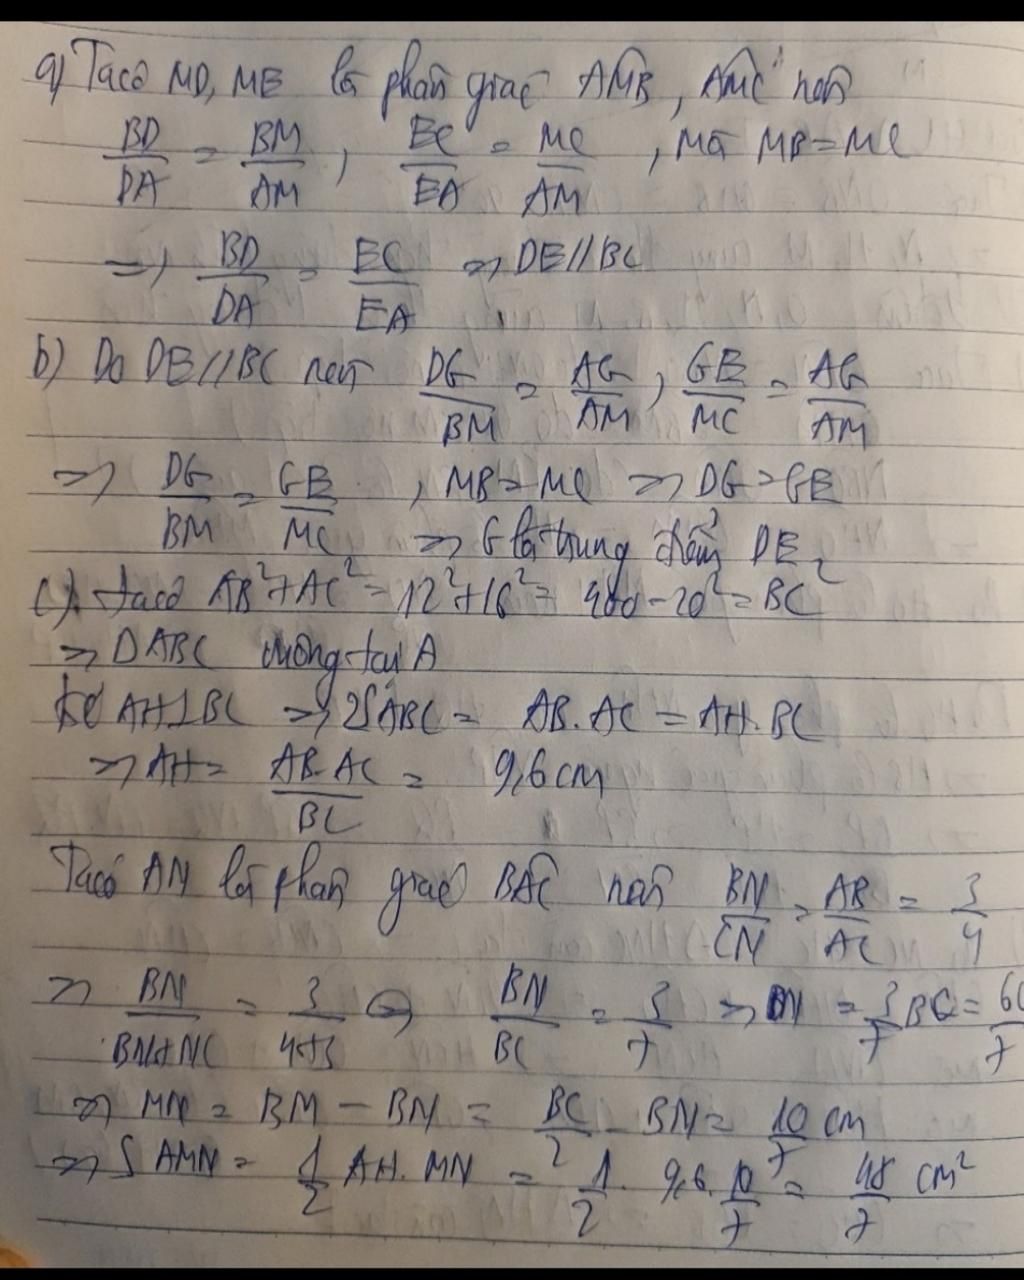 a) Ta có MD, ME là phân giác AMB, AMC nên
BD/DA = BM/AM, EC/EA = MC/AM, mà MB = MC
=> BD/DA = EC/EA => DE // BC
b) Do DE // BC nên DG/BM = AG/AM, GE/MC = AG/AM
=> DG/BM = GE/MC, MB = MC => DG = GE
=> G là trung điểm DE
c) ta có AB² + AC² = 12² + 16² = 400 = 20² = BC²
=> ΔABC vuông tại A
kẻ AH ⊥ BC => 2SABC = AB. AC = AH. BC
=> AH = AB. AC/BC = 9,6 cm
Ta có AN là phân giác BAC nên BN/CN = AB/AC = 3/4
=> BN/BN+NC = 3/4+3 <=> BN/BC = 3/7 => BN = 3/7 BC = 60/7
=> MN = BM - BN = BC/2 - BN = 10/7 cm
=> S AMN = 1/2 AH. MN = 1/2. 9,6. 10/7 = 48/7 cm²